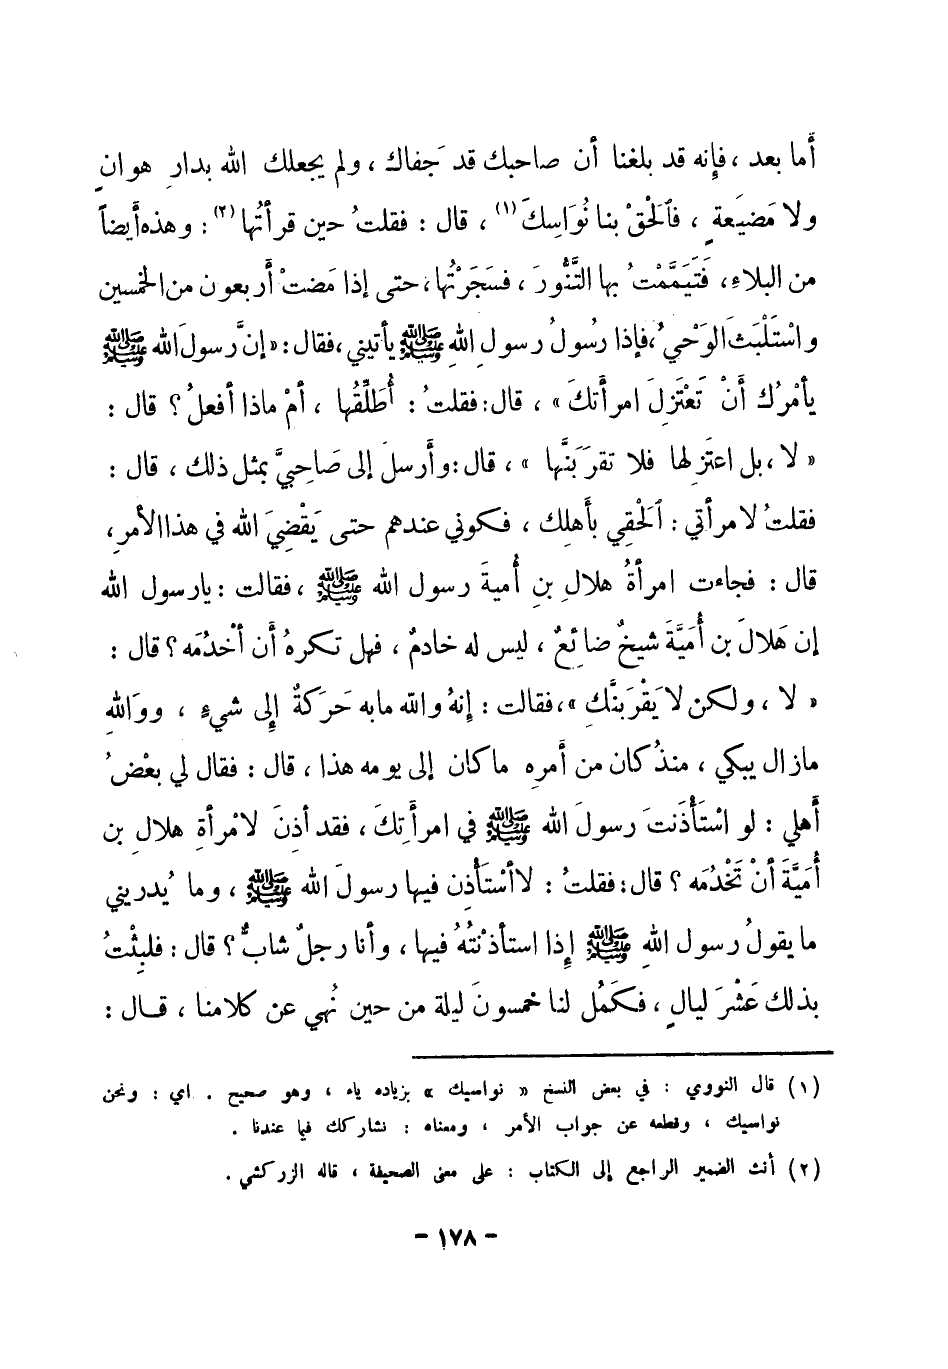 أَما بعد ، فإِنه قد بلغنا أَن صاحبك قد جَفاك ، ولم يجعلك الله بدارِ هوانٍ
ولا مَضيَعةٍ ، فَالْحقْ بنا نُوَاسِكَ (١) ، قال : فقلتُ حين قرأتُها (٢) : وهذه أَيضاً
من البلاءِ، فَتَيَمَّمْتُ بها التَّنُّورَ ، فسَجَرْتُها، حتى إذا مَضتْ أربعون من الخمسين
واسْتَلْبَثَ الوَحْيُ، فإذا رسُولُ رسولِ اللهِ ﷺ يأتيني، فقال: «إنَّ رسولَ الله ﷺ
يأمْرُك أَنْ تَعْتَزِلَ امرأَتكَ » ، قال: فقلتُ : أُطَلِّقُها ، أمْ ماذا أفعلُ؟ قال :
« لا ، بل اعتَزِلها فلا تقرَبَنَّها » ، قال: وأَرسلَ إلى صَاحِبيَّ بمثل ذلك ، قال :
فقلتُ لامرأتي : اَلْحَقِي بأَهلِك ، فكوني عندهم حتى يَقْضِيَ الله في هذا الأمرِ،
قال : فجاءت امرأةُ هلالِ بنِ أُميةَ رسول الله ﷺ ، فقالت : يارسول الله
إن هَلالَ بن أُمَيَّةَ شيخٌ ضائعٌ ، ليس له خادمٌ ، فهل تكرهُ أن أخْدُمَه ؟ قال :
« لا ، ولكن لا يَقْرَبنَّكِ »، فقالت : إنهُ والله مابه حَرَكةٌ إِلى شيءٍ ، ووَاللهِ
مازال يبكي ، منذُ كان من أَمرِه ماكان إلى يومه هذا ، قال : فقال لي بعْضُ
أَهلي : لو اسْتَأذَنتَ رسولَ الله ﷺ في امرأَتِكَ ، فقد أذِنَ لامْرأةِ هلالِ بن
أُمَيَّةَ أنْ تَخْدُمَه ؟ قال: فقلتُ : لا أسْتَأذِن فيها رسولَ الله ﷺ ، وما يُدريني
مايقولُ رسول اللهِ ﷺ إذا استأذنْتُهُ فيها ، وأنا رجلٌ شابٌّ؟ قال : فلبِثْتُ
بذلك عَشْرَ ليالٍ ، فكَمُل لنا خمسونَ ليلة من حين نُهي عن كلامنا ، قال :
(١) قال النووي : في بعض النسخ « نواسيك » بزياده ياء ، وهو صحيح . اي : ونحن
نواسيك ، وقطعه عن جواب الأمر ، ومعناه : نشاركك فيما عندنا .
(٢) أنث الضمير الراجع إلى الكتاب : على معنى الصحيفة ، قاله الزركشي .
- ١٧٨ -